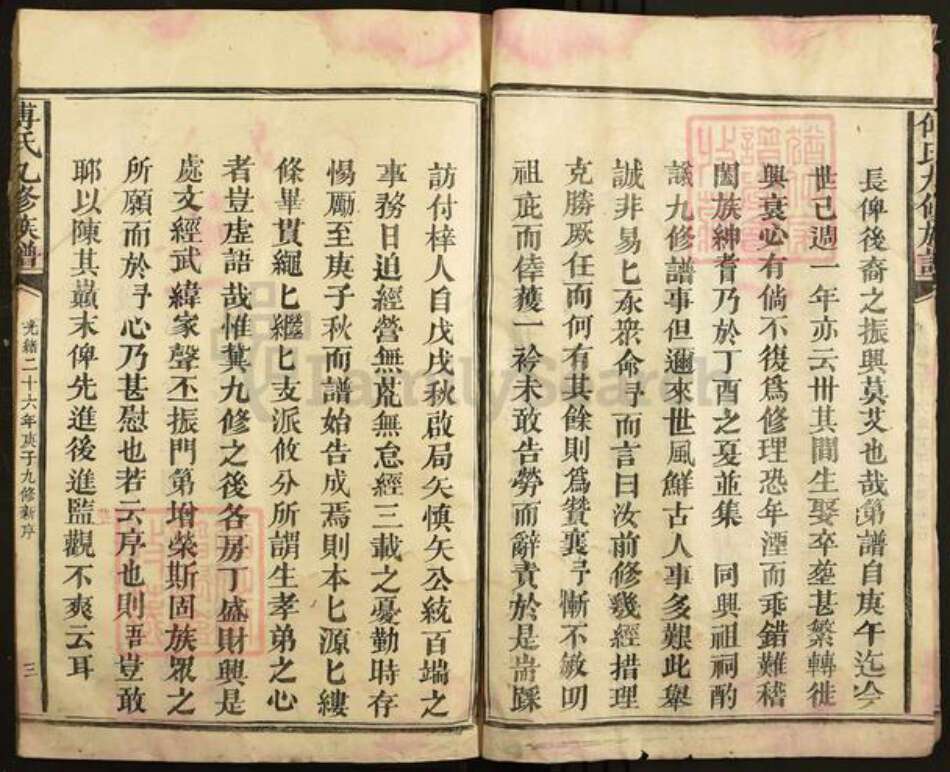 傅氏九修族譜
長俾後裔之振興莫艾也哉第譜自庚午迄今
世已週一年亦云卅其間生娶卒塟甚繁轉徙
興衰必有倘不復爲修理恐年湮而乖錯難稽
闔族紳耆乃於丁酉之夏並集 同興祖祠酌
議九修譜事但邇來世風鮮古人事多艱此舉
誠非易匕奈衆命予而言曰汝前修幾經措理
克勝厥任而何有其餘則爲贊襄予慚不敏叨
祖庇而倖蒦一衿未敢告勞而辭責於是耑踩
訪付梓人自戊戌秋啟局矢慎矢公統百端之
事務日迫經營無荒無怠經三載之憂勤時存
惕厲至庚子秋而譜始告成焉則本匕源匕縷
條畢貫繩匕繼匕支派攸分所謂生孝弟之心
者豈虛語哉惟冀九修之後各房丁盛財興是
處文經武緯家聲丕振門第增榮斯固族眾之
所願而於予心乃甚慰也若云序也則吾豈敢
耶以陳其顛末俾先進後進監觀不爽云耳
傅氏九修族譜
光緒二十六年庚子九修新序
三
FamilySearch